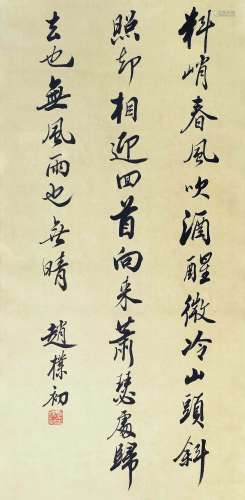 料峭春風吹酒醒微冷山頭斜
照却相迎回首向来萧瑟處歸
去也無風雨也无晴
趙樸初